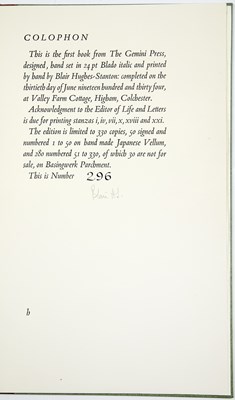 COLOPHON
This is the first book from The Gemini Press,
designed, hand set in 24 pt Blado italic and printed
by hand by Blair Hughes-Stanton: completed on the
thirtieth day of June nineteen hundred and thirty four,
at Valley Farm Cottage, Higham, Colchester.
Acknowledgment to the Editor of Life and Letters
is due for printing stanzas i, iv, vii, x, xviii and xxi.
The edition is limited to 330 copies, 50 signed and
numbered 1 to 50 on hand made Japanese Vellum,
and 280 numbered 51 to 330, of which 30 are not for
sale, on Basingwerk Parchment.
This is Number 296
b